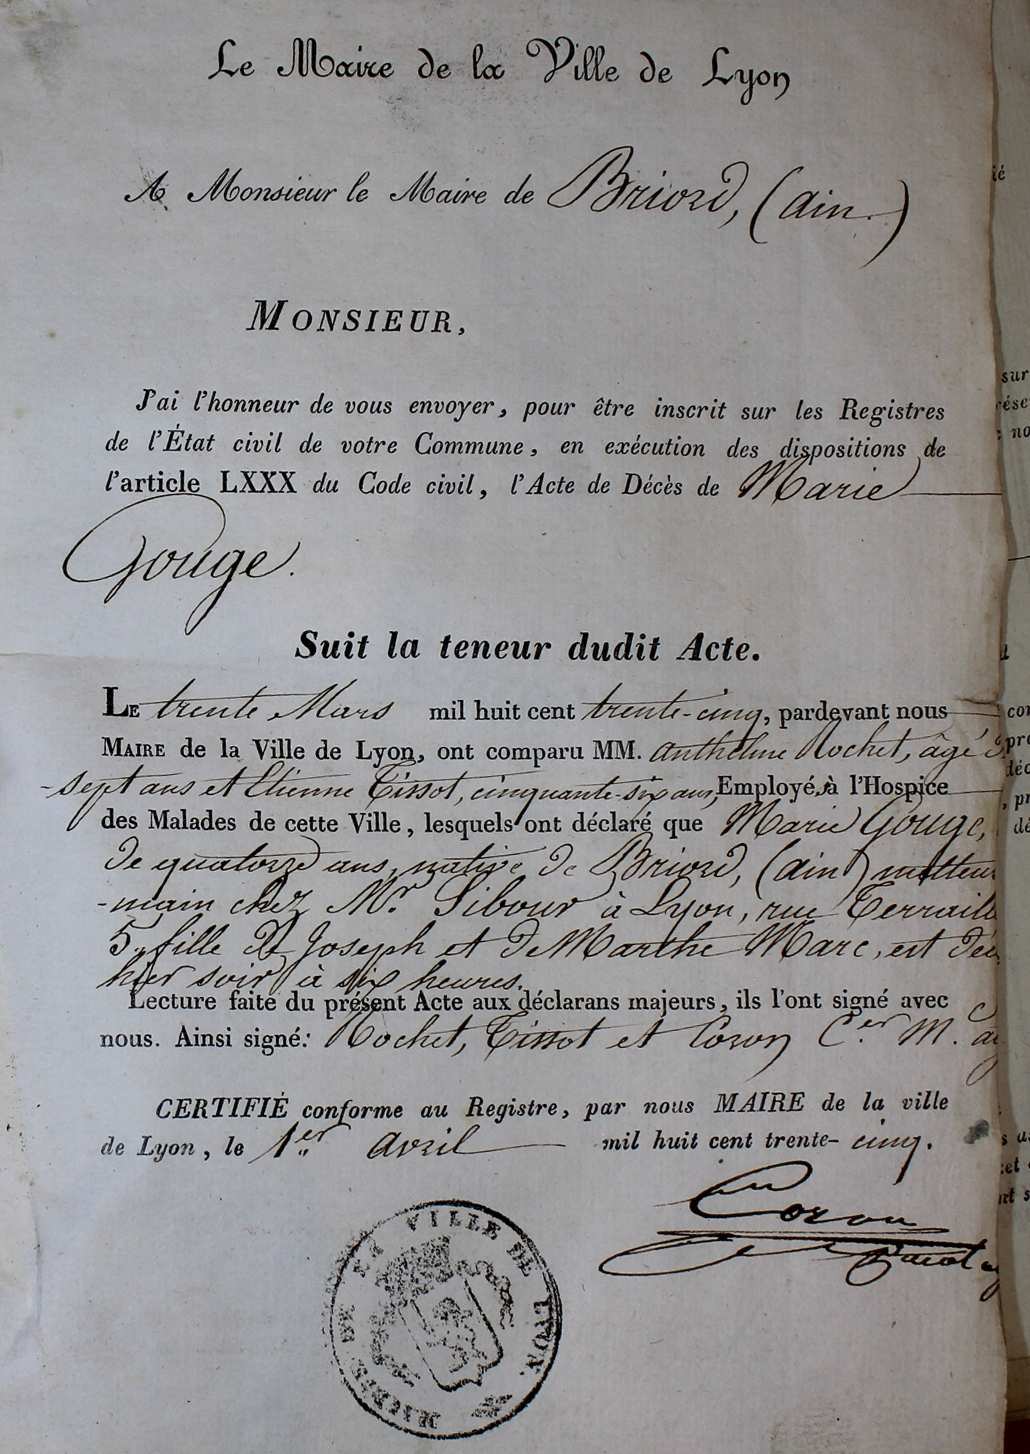 Le Maire de la Ville de Lyon
A Monsieur le Maire de Briord, (ain)
MONSIEUR,
J'ai l'honneur de vous envoyer, pour être inscrit sur les Registres
de l'État civil de votre Commune, en exécution des dispositions de
l'article LXXX du Code civil, l'Acte de Décès de Marie
Gouge.
Suit la teneur dudit Acte.
LE trente Mars mil huit cent trente-cinq, pardevant nous
MAIRE de la Ville de Lyon, ont comparu MM. anthelme Rochet, âgé
-sept ans et Etienne Tissot, cinquante-six ans, Employés à l'Hospice
des Malades de cette Ville, lesquels ont déclaré que Marie Gouge,
de quatorze ans, native de Briord, (ain) metteu
-main chez Mr. Sibour à Lyon, rue Terraill
5, fille de Joseph et de Marthe Marc, est
hier soir à six heures.
Lecture faite du présent Acte aux déclarans majeurs, ils l'ont signé avec
nous. Ainsi signé: Rochet, Tissot et Coron C.er M.
CERTIFIÉ conforme au Registre, par nous MAIRE de la ville
de Lyon, le 1er avril mil huit cent trente-cinq.
Coron
VILLE DE LYON
MAIRIE DE LA